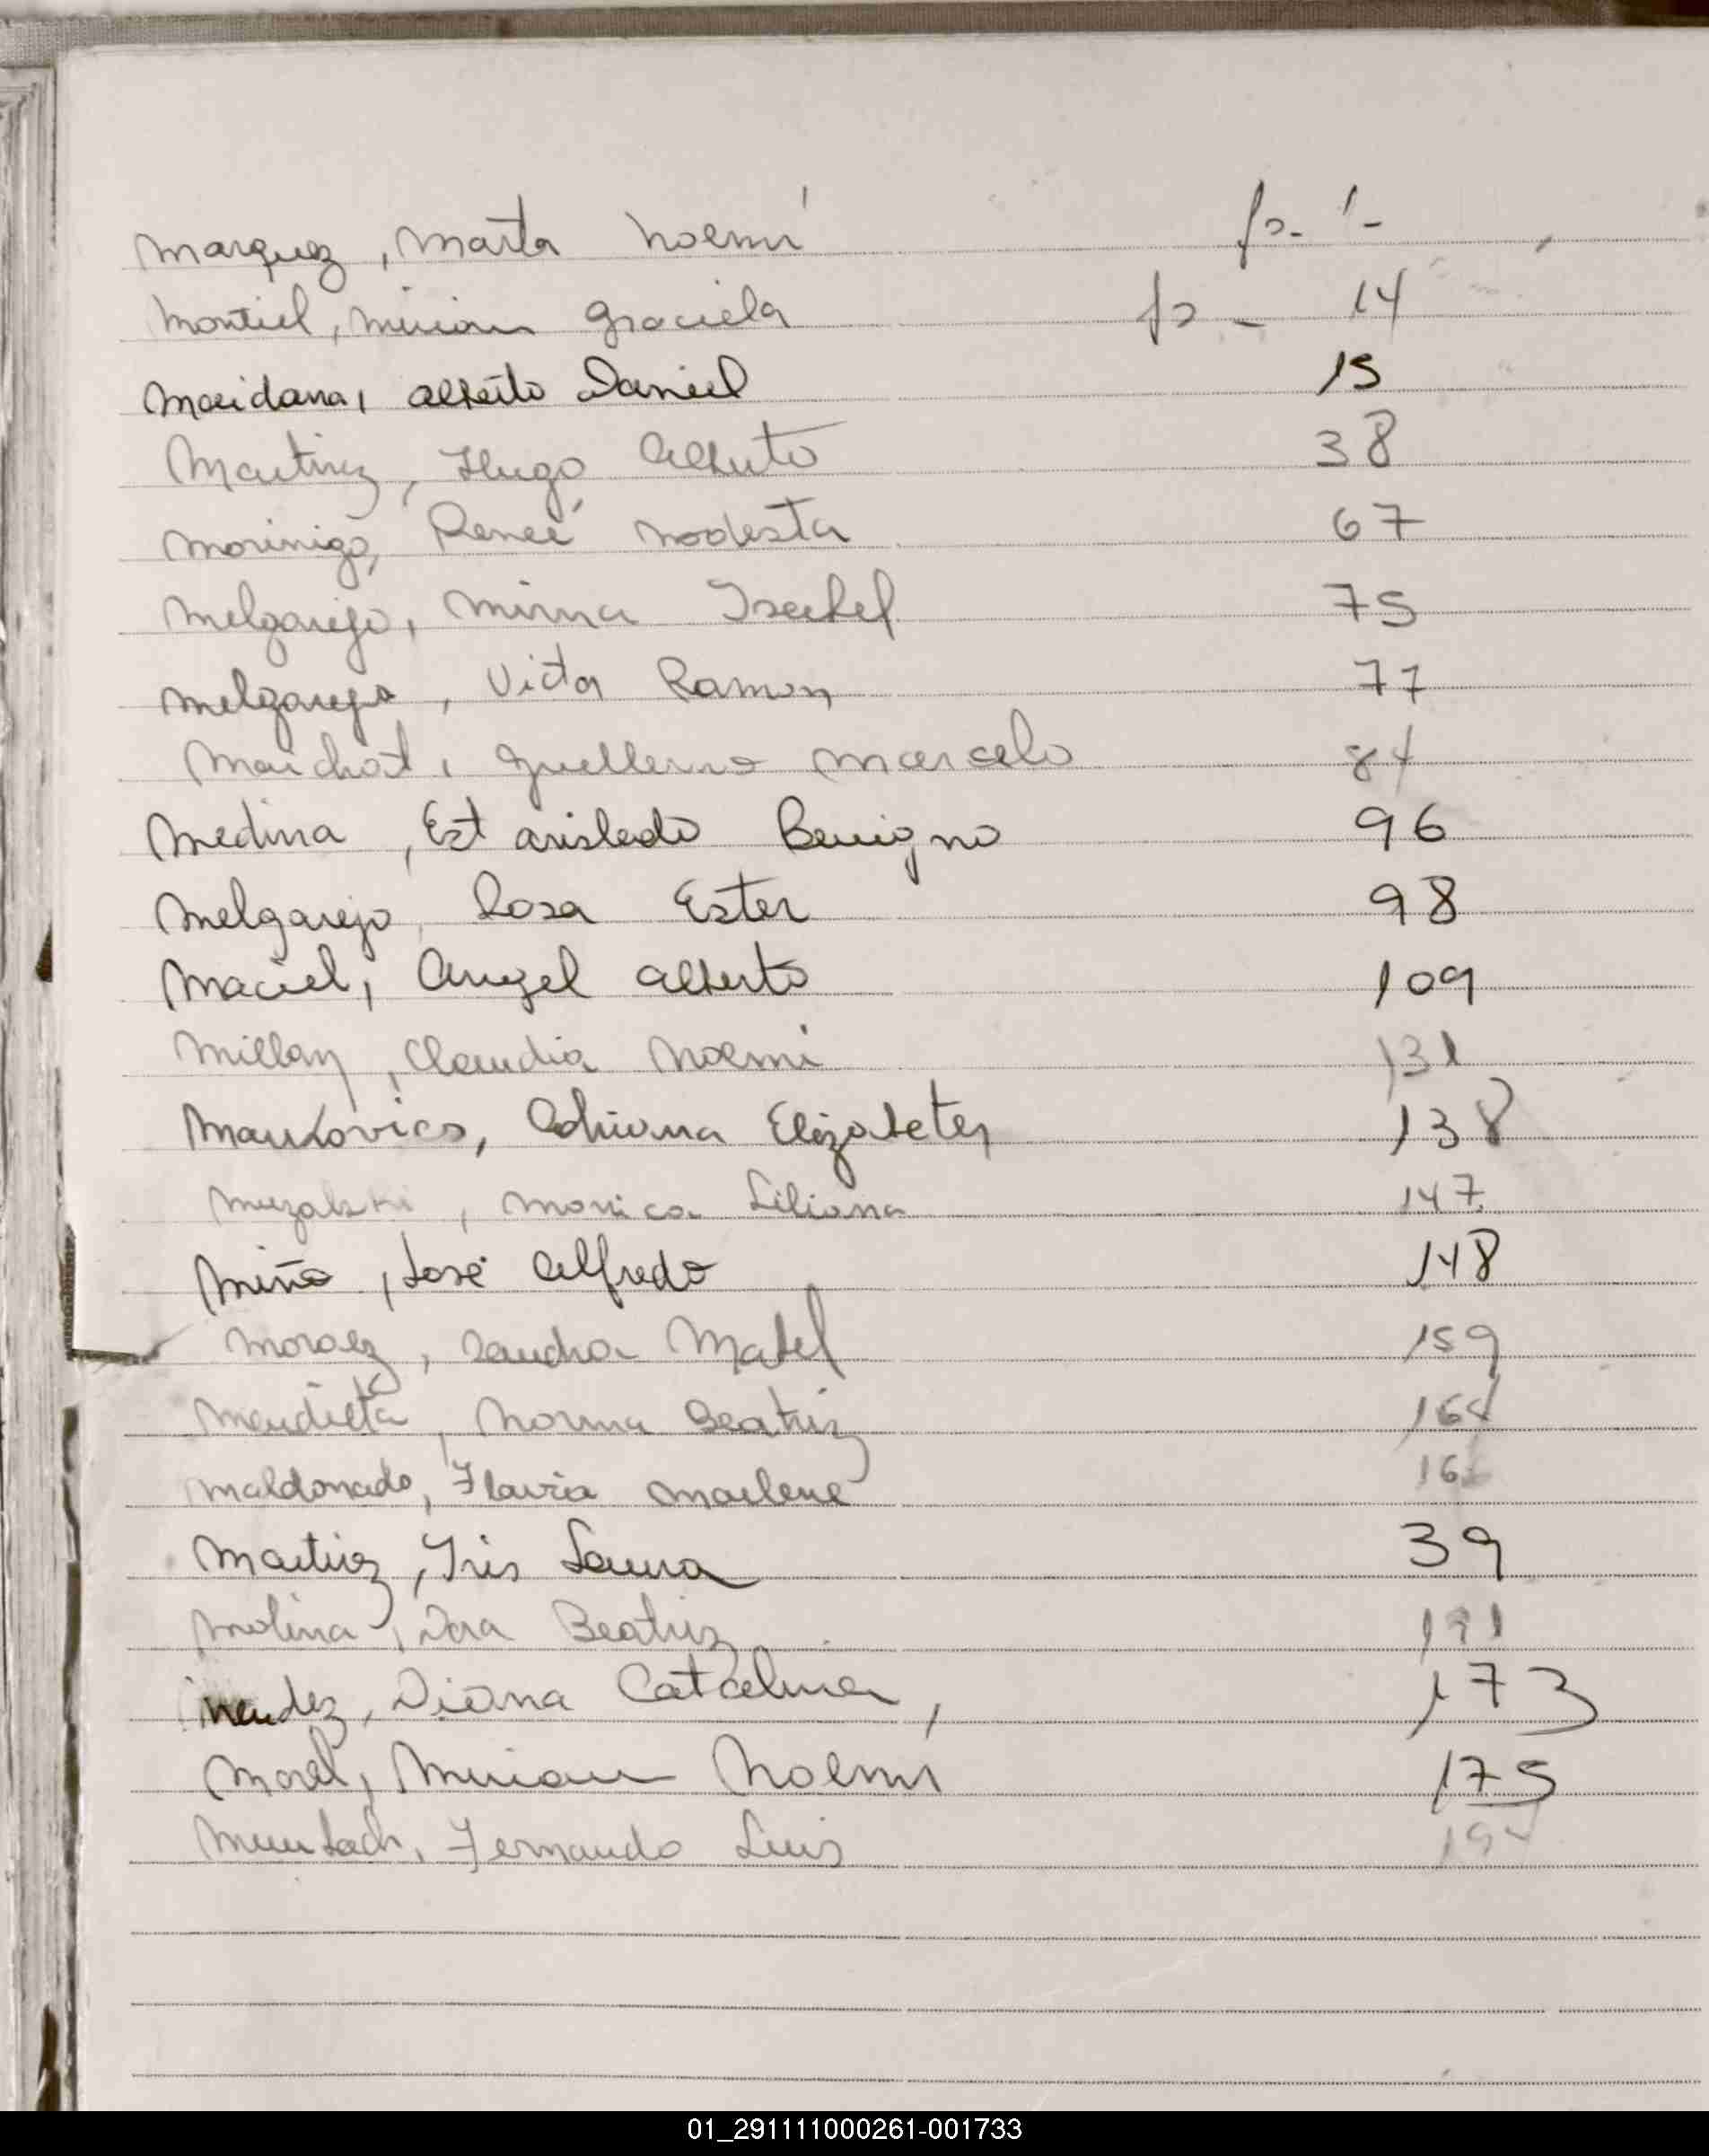 Marquez, Marta Noemí fo. 1-
Montiel, Miriam Graciela fo - 14
Meridana, Alberto Daniel 15
Martinez, Hugo Alberto 38
Morinigo, Reneé Modesta 67
Melgarejo, Mirna Isabel 75
Melgarejo, Victor Ramon 77
Marchot, Guillermo Marcelo 84
Medina, Estanislado Benigno 96
Melgarejo, Rosa Ester 98
Maciel, Angel Alberto 109
Millan, Claudia Noemí 131
Markovics, Adriana Elizabeter 138
Monica Liliana 147
Miño, José Alfredo 148
Moraez, Sandra Mabel 159
Mendieta, Norma Beatriz 164
Maldonado, Flavia Marlene
Martinez, Iris Laura 39
Molina, Beatriz 191
Mendez, Diana Catalina, 173
Morel, Miriam Noemí 175
Fernando Luis
01_291111000261-001733